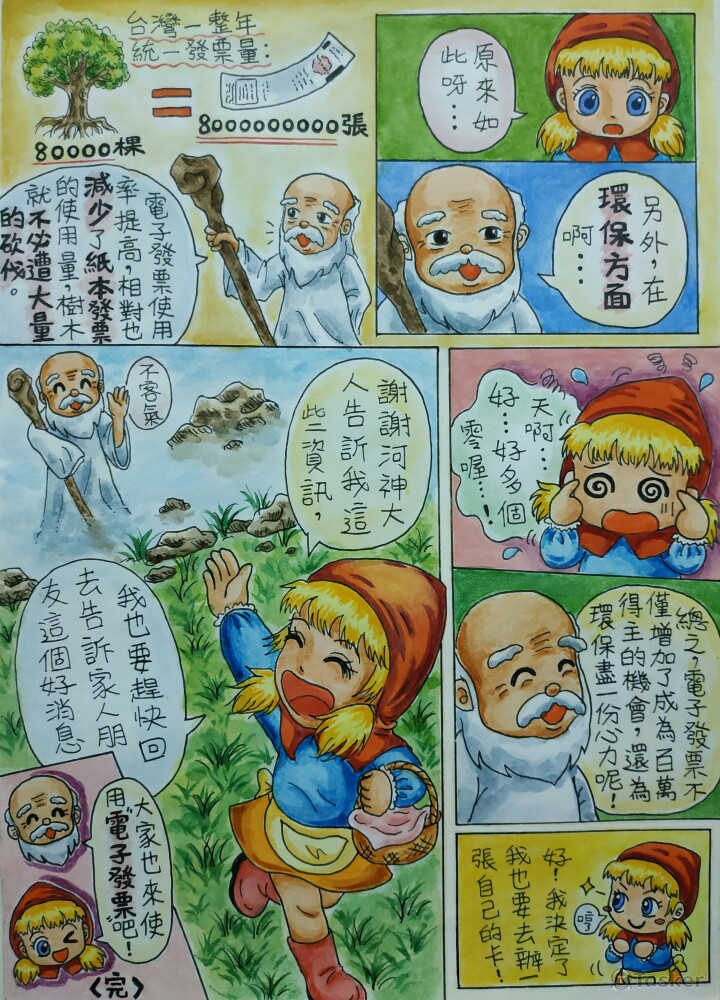 原來如
此呀…
另外，在
環保方面
啊…
台灣一整年
統一發票量：
8000000000張
80000棵
電子發票使用
率提高，相對也
減少了紙本發票
的使用量，樹木
就不必遭大量
的砍伐。
天啊…
好…好多個
零喔…！
總之，電子發票不
僅增加了成為百萬
得主的機會，還為
環保盡一份心力呢！
哼
好！我決定了
我也要去辦一
張自己的卡！
謝謝河神大
人告訴我這
些資訊，
不客氣
我也要趕快回
去告訴家人朋
友這個好消息
大家也來使
用"電子發票"吧！
〈完〉
Tasker